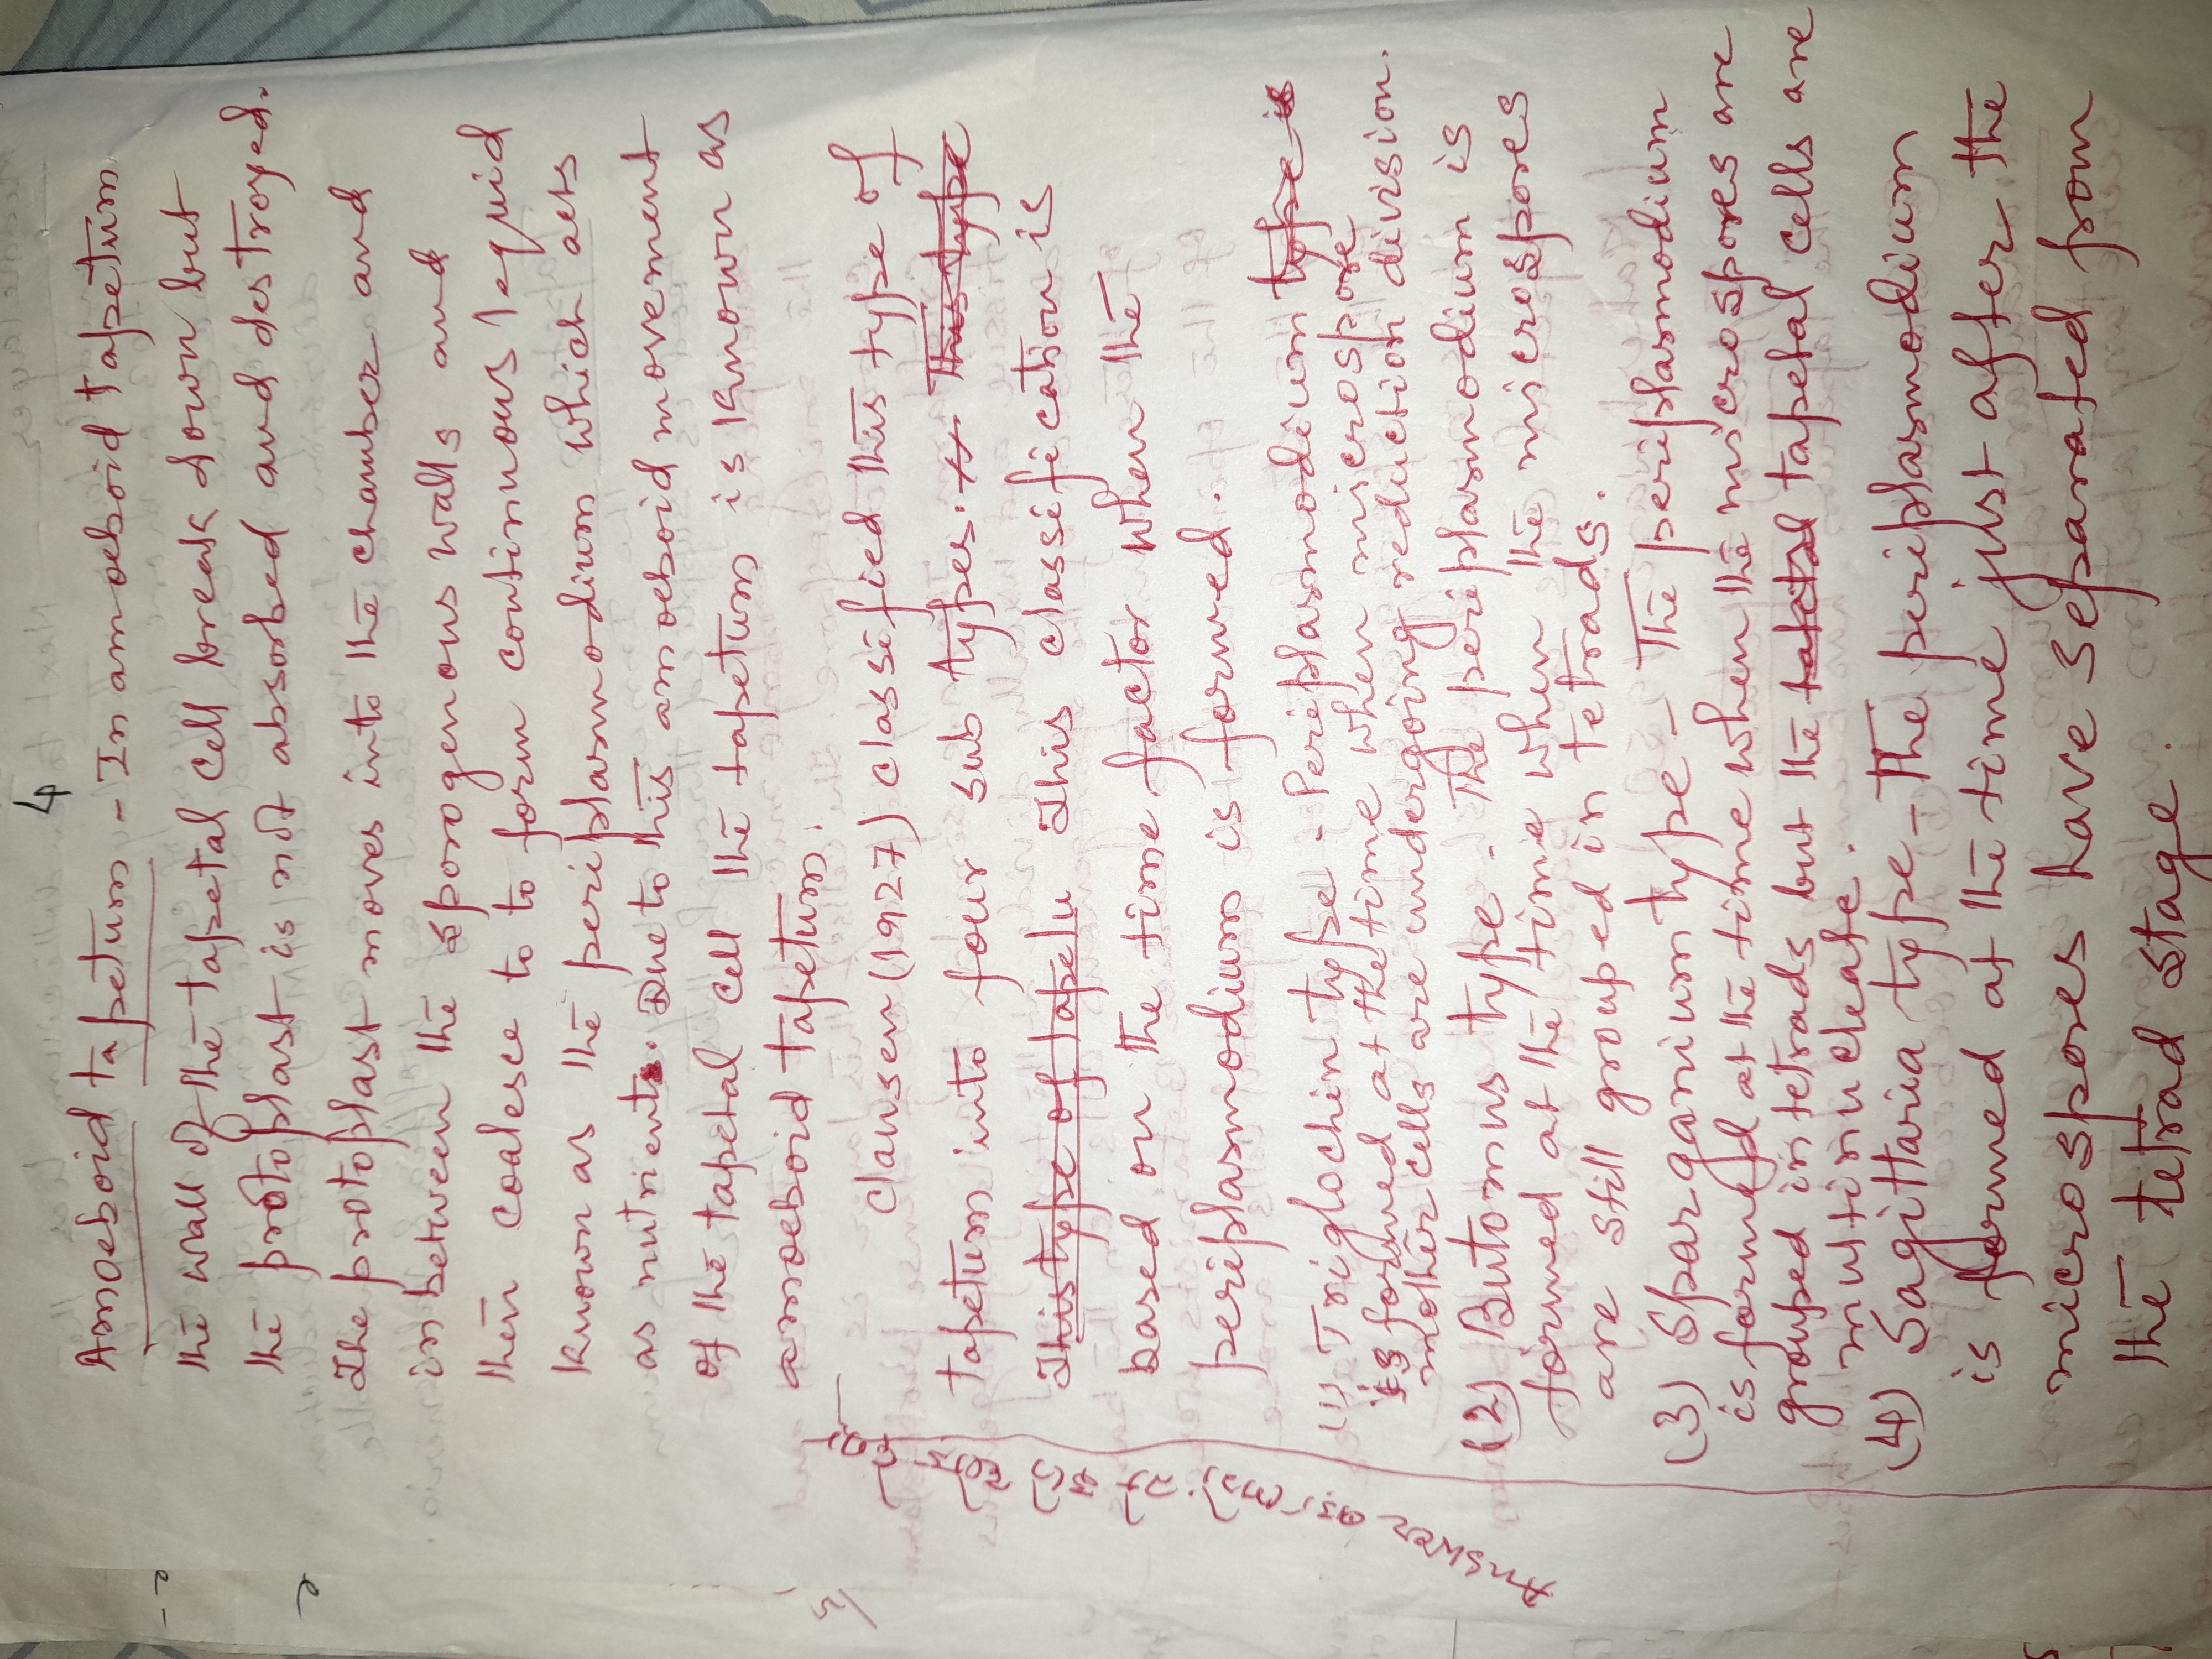 4
Amoeboid tapetum - In amoeboid tapetum
the wall of the tapetal cell break down but
the protoplast is not absorbed and destroyed.
The protoplast moves into the chamber and
in between the sporogenous walls and
then coalesce to form continuous lequid
known as the periplasmodium which acts
as nutrients. Due to this amoeboid movement
of the tapetal cell the tapetum is known as
amoeboid tapetum.
Clausen (1927) classified this type of
tapetum into four sub types. This type
This type of tapelu This classification is
based on the time factor when the
periplasmodium is formed.
(1) Triglochin type - Periplasmodium type is
is formed at the time when microspore
mother cells are undergoing reduction division.
(2) Butomus type - The periplasmodium is
formed at the time when the microspores
are still grouped in tetrads.
(3) Sparganium type - The periplasmodium
is formed at the time when the microspores are
grouped in tetrads but the tapetal cells are
mustinucleate.
(4) Sagittaria type - The periplasmodium
is formed at the time just after the
microspores have separated from
the tetrad stage.
Answer